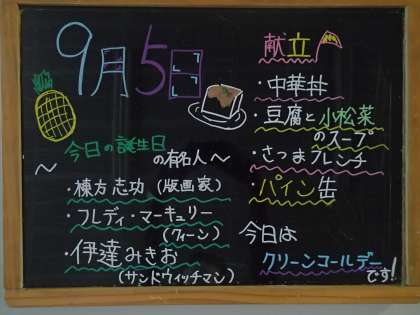 9月5日
～今日の誕生日の有名人～
・棟方志功（版画家）
・フレディ・マーキュリー
（クィーン）
・伊達みきお
（サンドウィッチマン）
献立
・中華丼
・豆腐と小松菜
のスープ
・さつまフレンチ
・パイン缶
今日は
クリーンコールデー
です!